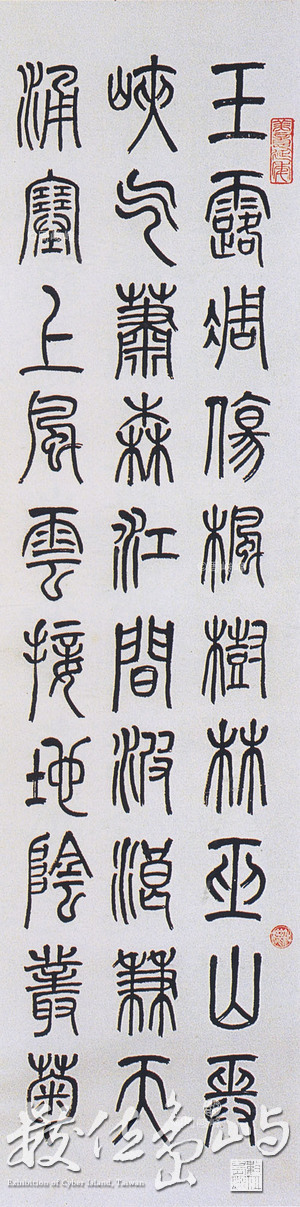 玉露凋傷楓樹林巫山巫
峽气蕭森江間波浪兼天
涌塞上風雲接地陰叢菊
數位島嶼
Exhibition of Cyber Island, Taiwan